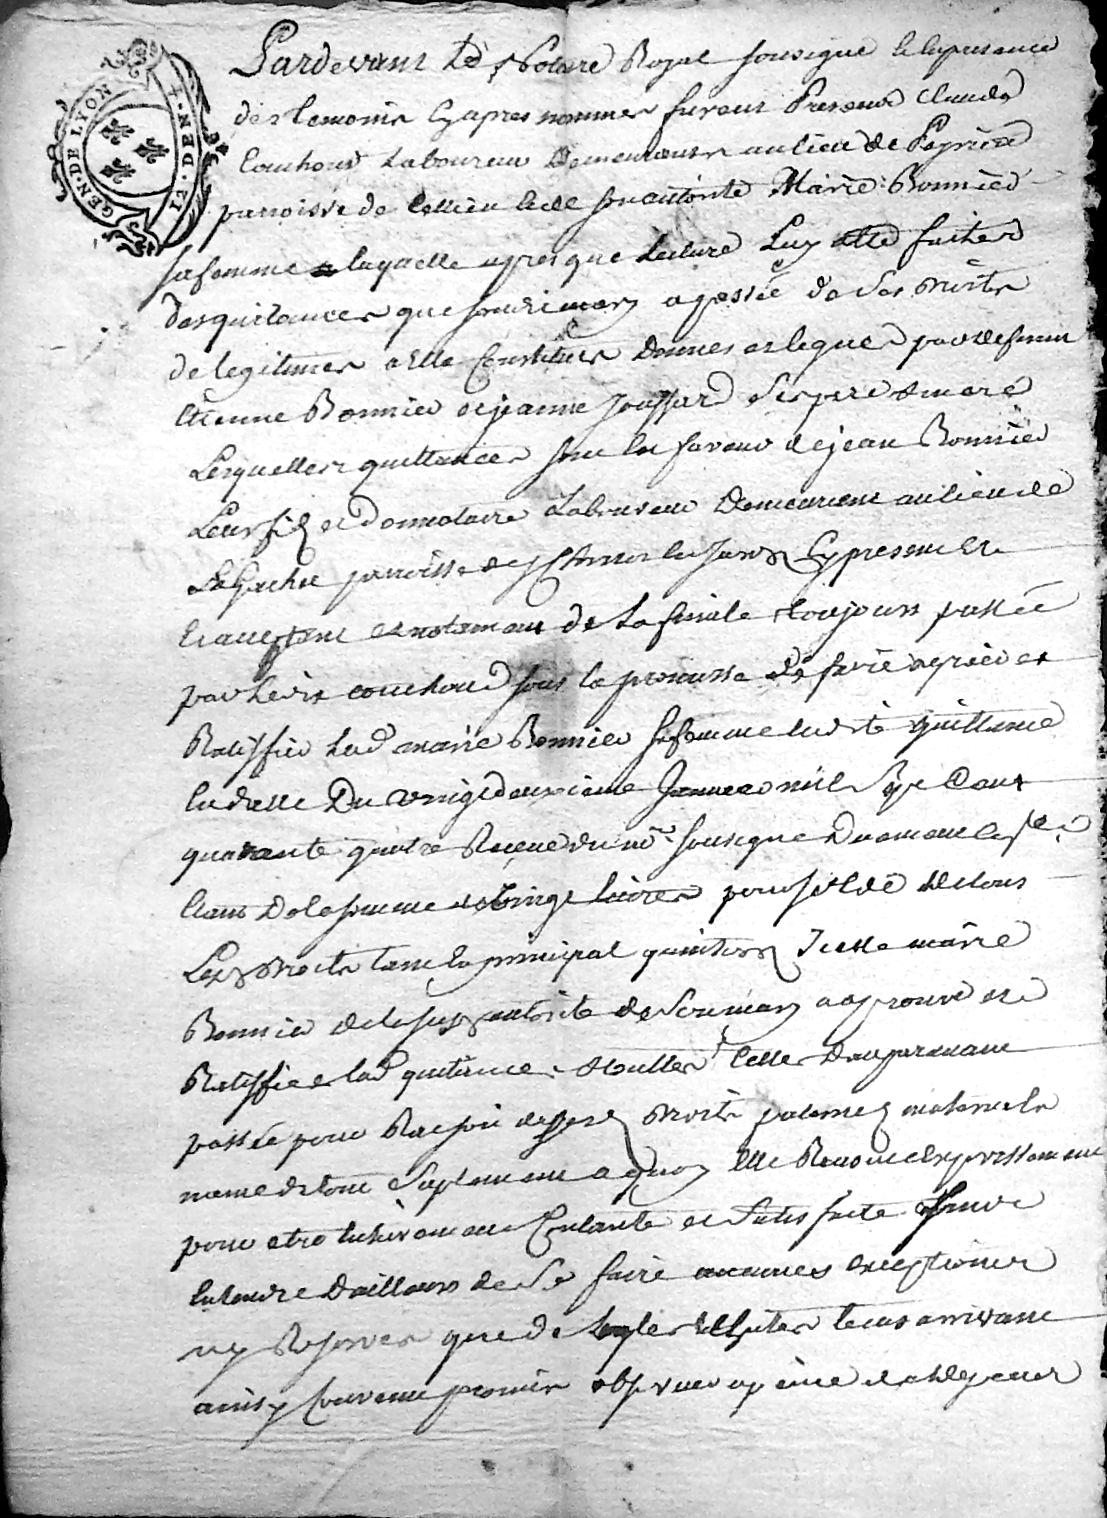 GEN · DE LYON
II · DEN · I
Pardevant Le Notaire Royal soussigné En la presance
des temoins Cy apres nommes furent Presents Claude
Couhoud Laboureur Demeurant au lieu de
parroisse de Cellieu et de son autorité Marie Bonnier
sa femme laquelle apres que lecture Luy a Eté faitte
des quitances que son dit mary a passée de ses droits
de legitimes a Elle Constitués donnes et legues par deffunt
Etienne Bonnier et jeanne joussard ses pere et mere
Lesquelles quittances sont En faveur de jean Bonnier
Leur fils et Donnataire Laboureur Demeurant au lieu de
La parroisse de Cy present Et
Et acceptant et notament de La finale toujours passée
par Ledit couhoud sous la promesse de faire agreer et
Ratiffier Lad marie Bonnier sa femme lad te quittance
En datte Du vingt deuxieme Janvier mil sept Cent
quarante quatre Reçue du no.re soussigné
de la somme de vingt livres pour solde de tous
Les droits tant En principal qu'interets Icelle marie
Bonnier de la susd autorité de son mary a aprouvé et
Ratiffie lad quitance Et toutes Celles Dauparavant
passée pour Raison desd droits paternels maternels
meme de tout suplement a quoy Elle Renonce Expressement
pour etre Entierement Contante et satisfaite sans
Entendre d'ailleurs de se faire aucunes exceptions
ny Reserves que de le cas arrivant
ainsy Convenu promis observer a peine de tous depens